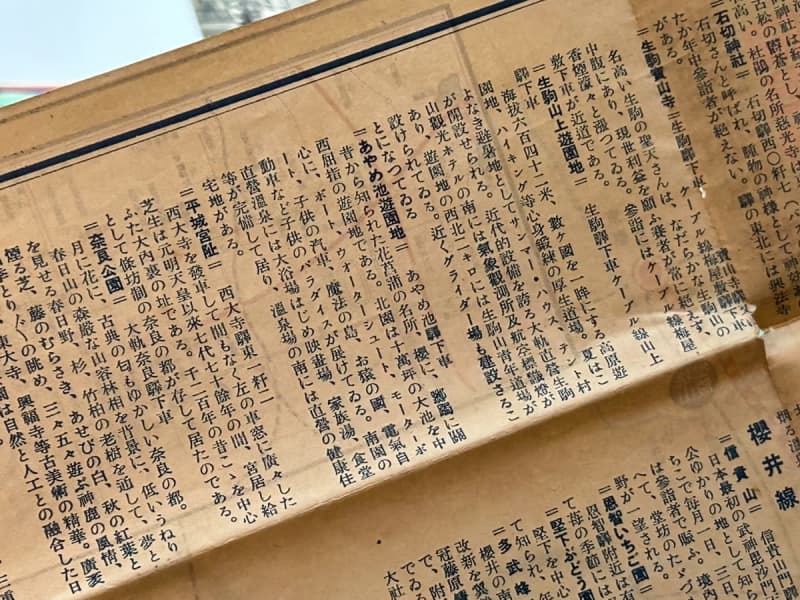 ＝石切神社＝　石切驛西〇粁七
石切さんと呼ばれ、腫物の神様として
たか年中參詣者が絶えない。驛の東北には興法寺
がある。
＝生駒寶山寺＝生駒驛下車、ケーブル線寶山寺驛下車梅屋敷驛下車
名高い生駒の聖天さんは、なだらかな生駒山の
中腹にあり、現世利益を願ふ賽者が常に絶えず、
香煙濛々と漲つてゐる。參詣にはケーブル線梅屋
敷下車が近道である。
＝生駒山上遊園地＝　生駒驛下車ケーブル線山上
驛下車
海拔六百四十二米、數ヶ國を一眸にする高原遊
園地、ハイキング等心身鍛錬の厚生道場。夏はこ
よなき避暑地としてサンマー・ハウス、テント村
が開設せられる。近代的設備を誇る大軌直營生駒
山觀光ホテルの南には氣象觀測所及航空標識燈が
あり、遊園地の西北二キロには生駒山靑年道場が
設けられてゐる　近くグライダー場も建設さるこ
とになつてゐる
＝あやめ池遊園地＝　あやめ池驛下車
昔から知られた花菖蒲の名所、櫻に、躑躅に關
西屈指の遊園地である。北園は十萬坪の大池を中
心に、ボート、ウォーターシュート、モーターボ
ート、子供の汽車、魔法の島、お猿の國、電氣自
動車など子供のパラダイスが展けてゐる。南園の
直營溫泉には大浴場はじめ映畫場、家族湯、食堂
等が完備して居り、溫泉場の南には直營の健康住
宅地がある。
＝平城宮址＝　西大寺驛東一粁二
西大寺を發車して間もなく左の車窓に廣々した
芝生は元明天皇以來七代七十餘年の間、宮居し給
ふた大內裏の址である。千二百年の昔こゝを中心
として條坊制の奈良の都が存して居たのである。
＝奈良公園＝　大軌奈良驛下車
月に花に、古典の匂もゆかしい奈良の都。
春日山の森嚴な山容林相を背景に、低いうねり
を見せる春日野。杉、竹柏の老樹を通して、夢と
煙る芝、藤のむらさき、あせびの白、秋の紅葉と
の眺め、三々五々遊ぶ神鹿の風情、
東大寺、興福寺等古美術の精華。廣袤
園は自然と人工との融合した日
櫻井線
＝信貴山＝　信貴山門
日本最初の武神毘沙門
公ゆかりの地として知ら
ちこで每月一日、三日、
は參詣者で賑のたゞづ
へて、堂坊の
野が一望される。
＝恩智いちご園＝
恩智驛附近は有
て苺の季節には
＝堅下ぶどう園
堅下を中心
て知られ、年
＝多武峰
櫻井の
改新を
冠藤原
で、附
でる。
大社